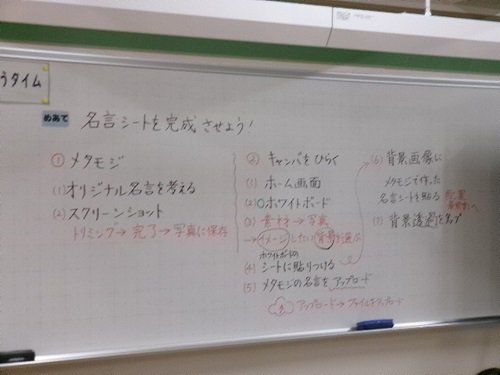 うタイム
めあて 名言シートを完成させよう!
① メタモジ
(1) オリジナル名言を考える
(2) スクリーンショット
トリミング→完了→写真に保存
② キャンバをひらく
(1) ホーム画面
(2) ホワイトボード
(3) 素材→写真
→イメージしたい背景を選ぶ
ホワイトボードの
(4) シートに貼りつける
(5) メタモジの名言をアップロード
アップロード→ファイルをアップロード
(6) 背景画像に
メタモジで作った
名言シートを貼る
(7) 背景透過をタップ